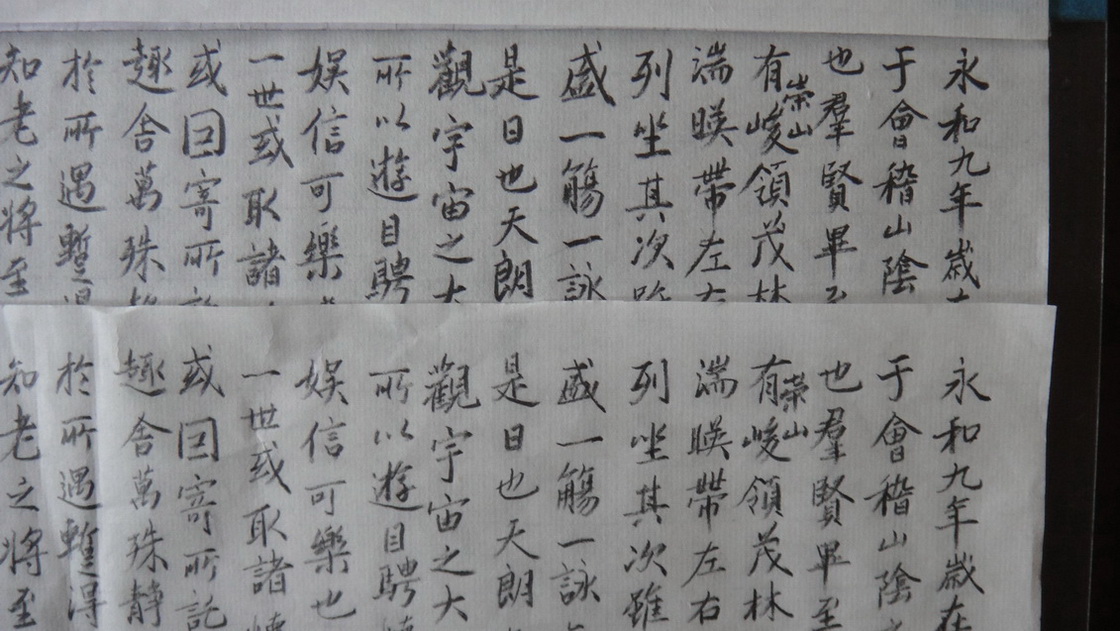 永和九年歲
于會稽山陰
也羣賢畢至
有崇山峻領茂林
湍暎帶左右
列坐其次
盛一觴一詠
是日也天朗
觀宇宙之大
所以遊目騁
娛信可樂
一世或取諸
或因寄所
趣舍萬殊
於所遇暫得
知老之將至
永和九年歲在
于會稽山陰
也羣賢畢至
有崇山峻領茂林
湍暎帶左右
列坐其次雖
盛一觴一詠
是日也天朗
觀宇宙之大
所以遊目騁
娛信可樂也
一世或取諸
或因寄所託
趣舍萬殊靜
於所遇暫得
知老之將至